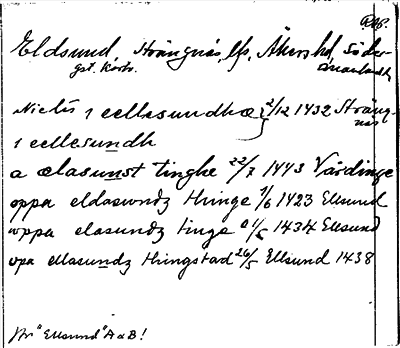 Eldsund, Strängnäs lfs, Åkers hd, Söder-
gst. Kårb. manland
Nielis i eellesundhæ } 2/12 1432 Sträng-
näs
i eellesundh
a ælasunst tinghe 22/7 1443 Vårdinge
oppa eldaswndz thinge 1/6 1423 Ellsund
wppa elasundz tinge 1/6 1434 Ellsund
vpa ellasundz thingstad 26/5 Ellsund 1438
"Ellsund" A o B!